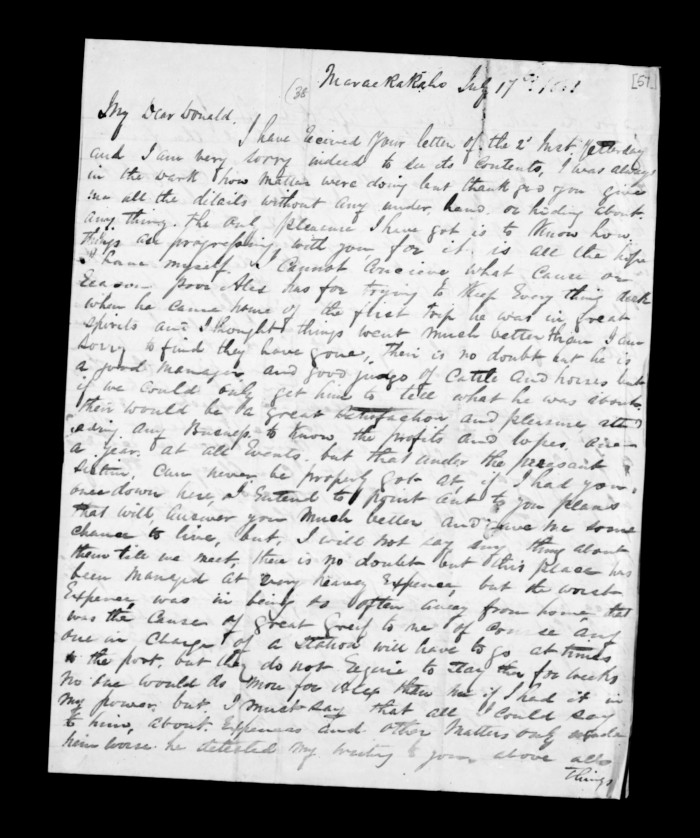 [57]
(38
Maraekakaho July 17th
My Dear Donald,
I have received your letter of the 2d Inst yesterday
and I am very sorry indeed to see its contents, I was always
in the dark how matters were doing but thank god you give
me all the ditails without any under, hand, or hiding about
any thing. the only pleasure I have got is to know how
things are progressing with you for it is all the hope
I have myself. I cannot conceive what cause or
reason poor Alex has for trying to keep Every thing dark
when he came home of the first trip he was in great
spirits and I thought things went much better than I am
sorry to find they have gone, their is no doubt but he is
a good manager and good judge of Cattle and horses but
if we could only get him to tell what he was about
their would be a great satisfaction and pleasure
any Business to know, the profits and loses
a year. at all Events. but that under the preasant
can never be properly got at if I had you
once down here, I Entend to point out to you plans
that will answer you much better and me some
chance to live, but, I will not say any thing about
them till we meet, there is no doubt but this place has
been managed at very heavey Expence, but the worst
Expence, was in being so often away from home, that
was the cause of great Greif to me of course any
one in charge of a station will have to go at times
to the port, but they do not require to stay there for weeks
no one would do more for Alex then me if I had it in
my power, but, I must say that all I could say
to him, about Expences and other matters only made
him worse. he detested my writing to you above all
things